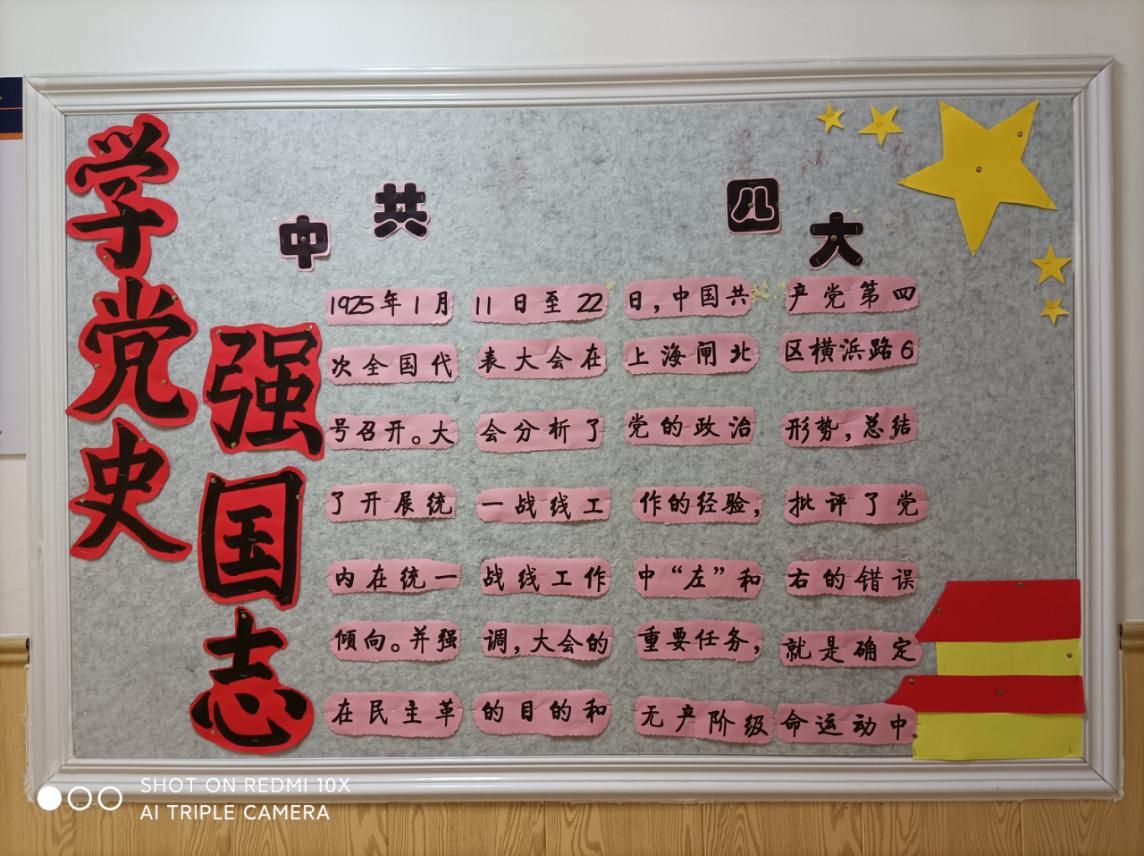 学党史
强国志
中共四大
1925年1月11日至22日,中国共产党第四
次全国代表大会在上海闸北区横浜路6
号召开。大会分析了党的政治形势,总结
了开展统一战线工作的经验,批评了党
内在统一战线工作中“左”和右的错误
倾向。并强调,大会的重要任务,就是确定
在民主革的目的和无产阶级命运动中
SHOT ON REDMI 10X
AI TRIPLE CAMERA